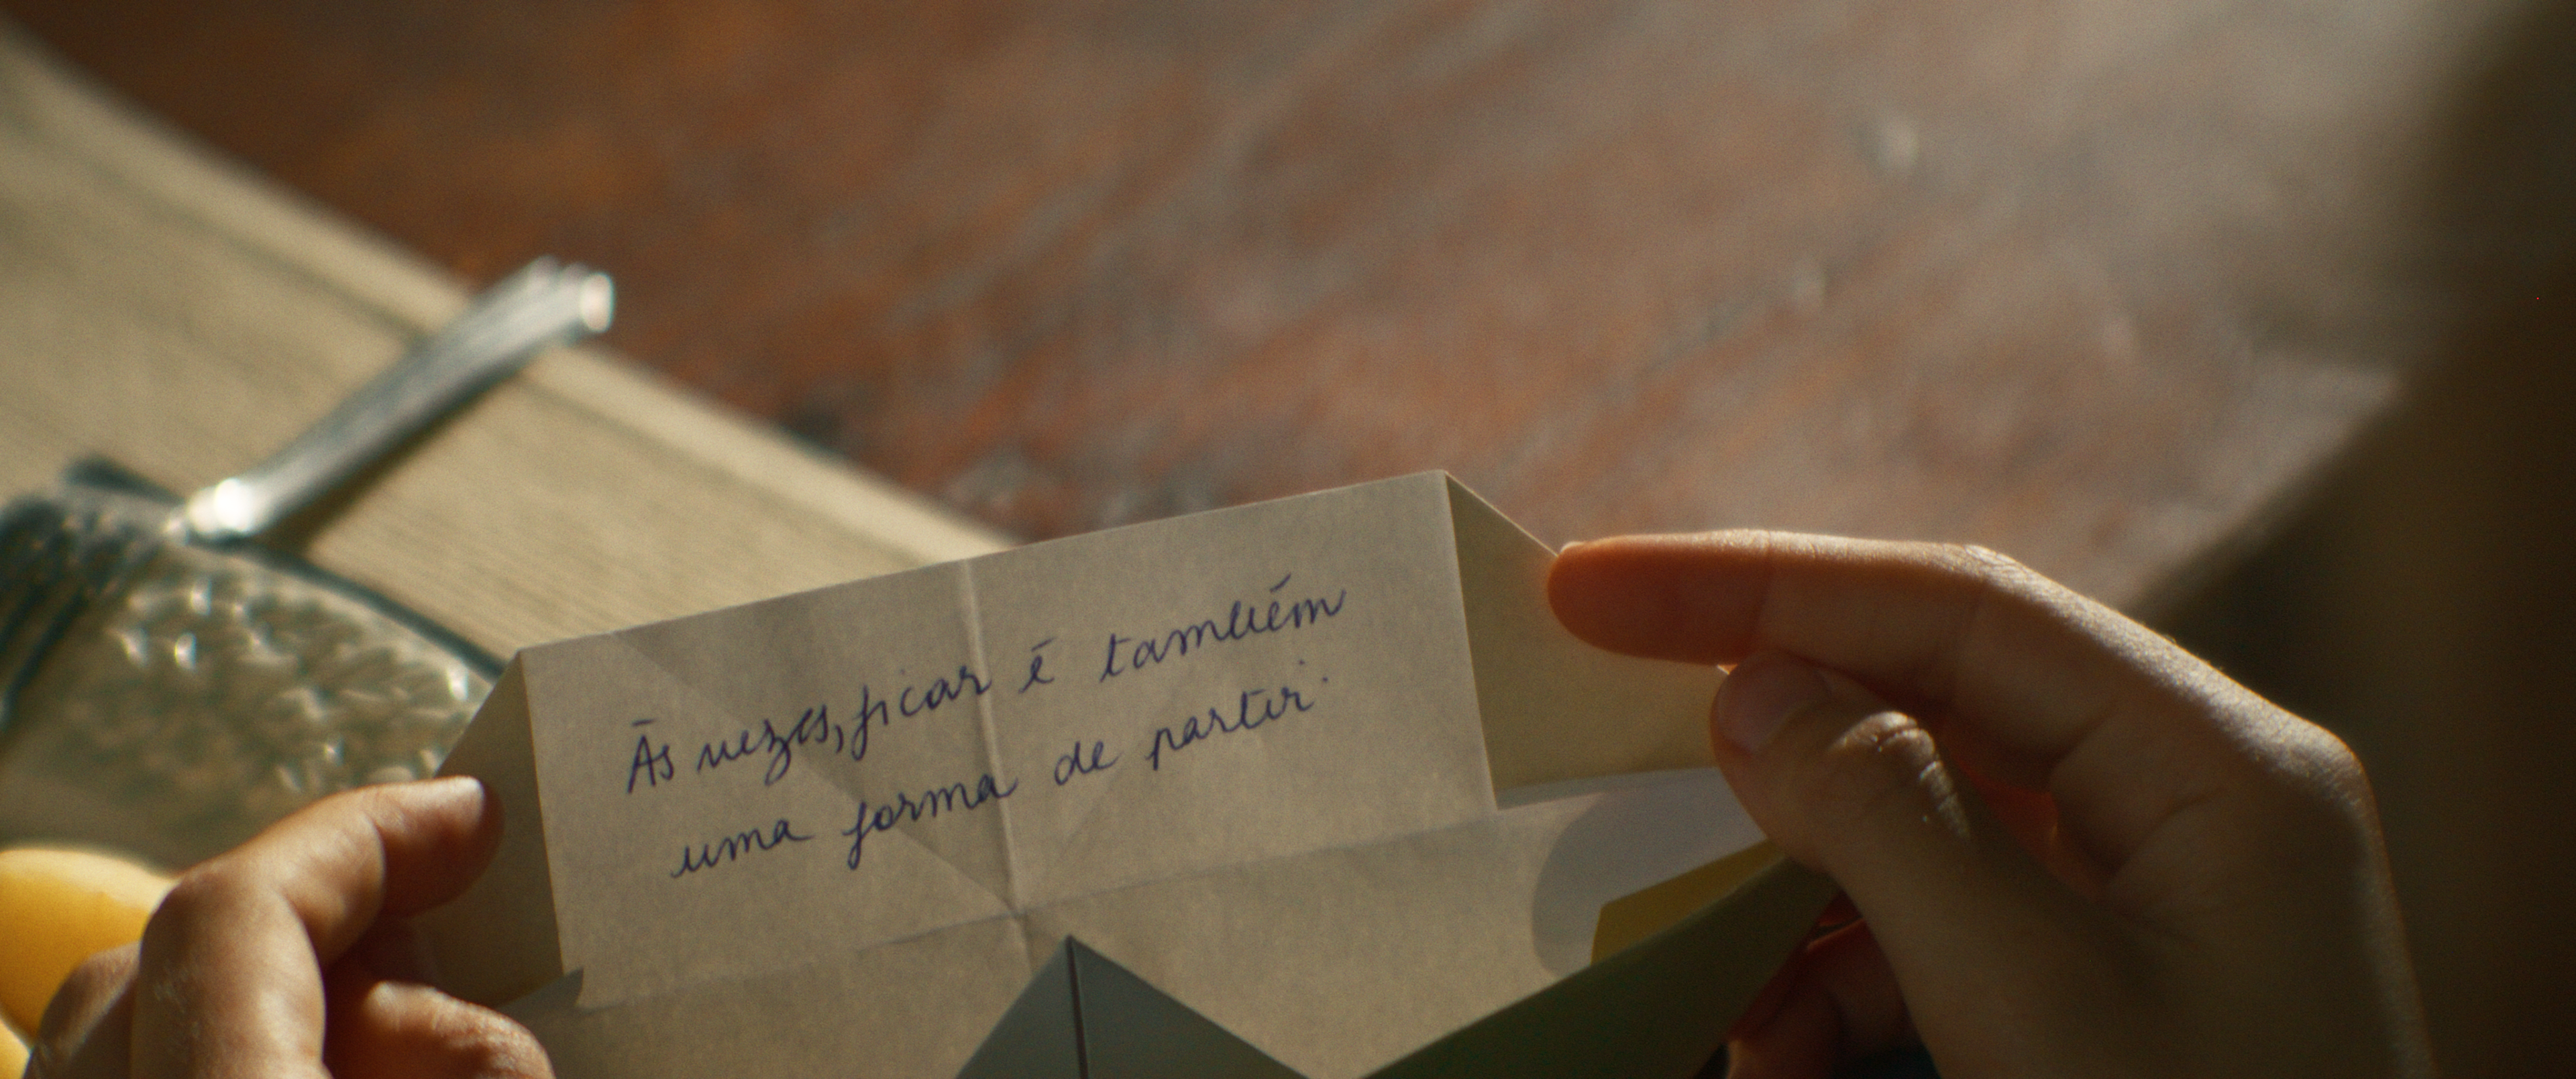 Às vezes, ficar é também
uma forma de partir.